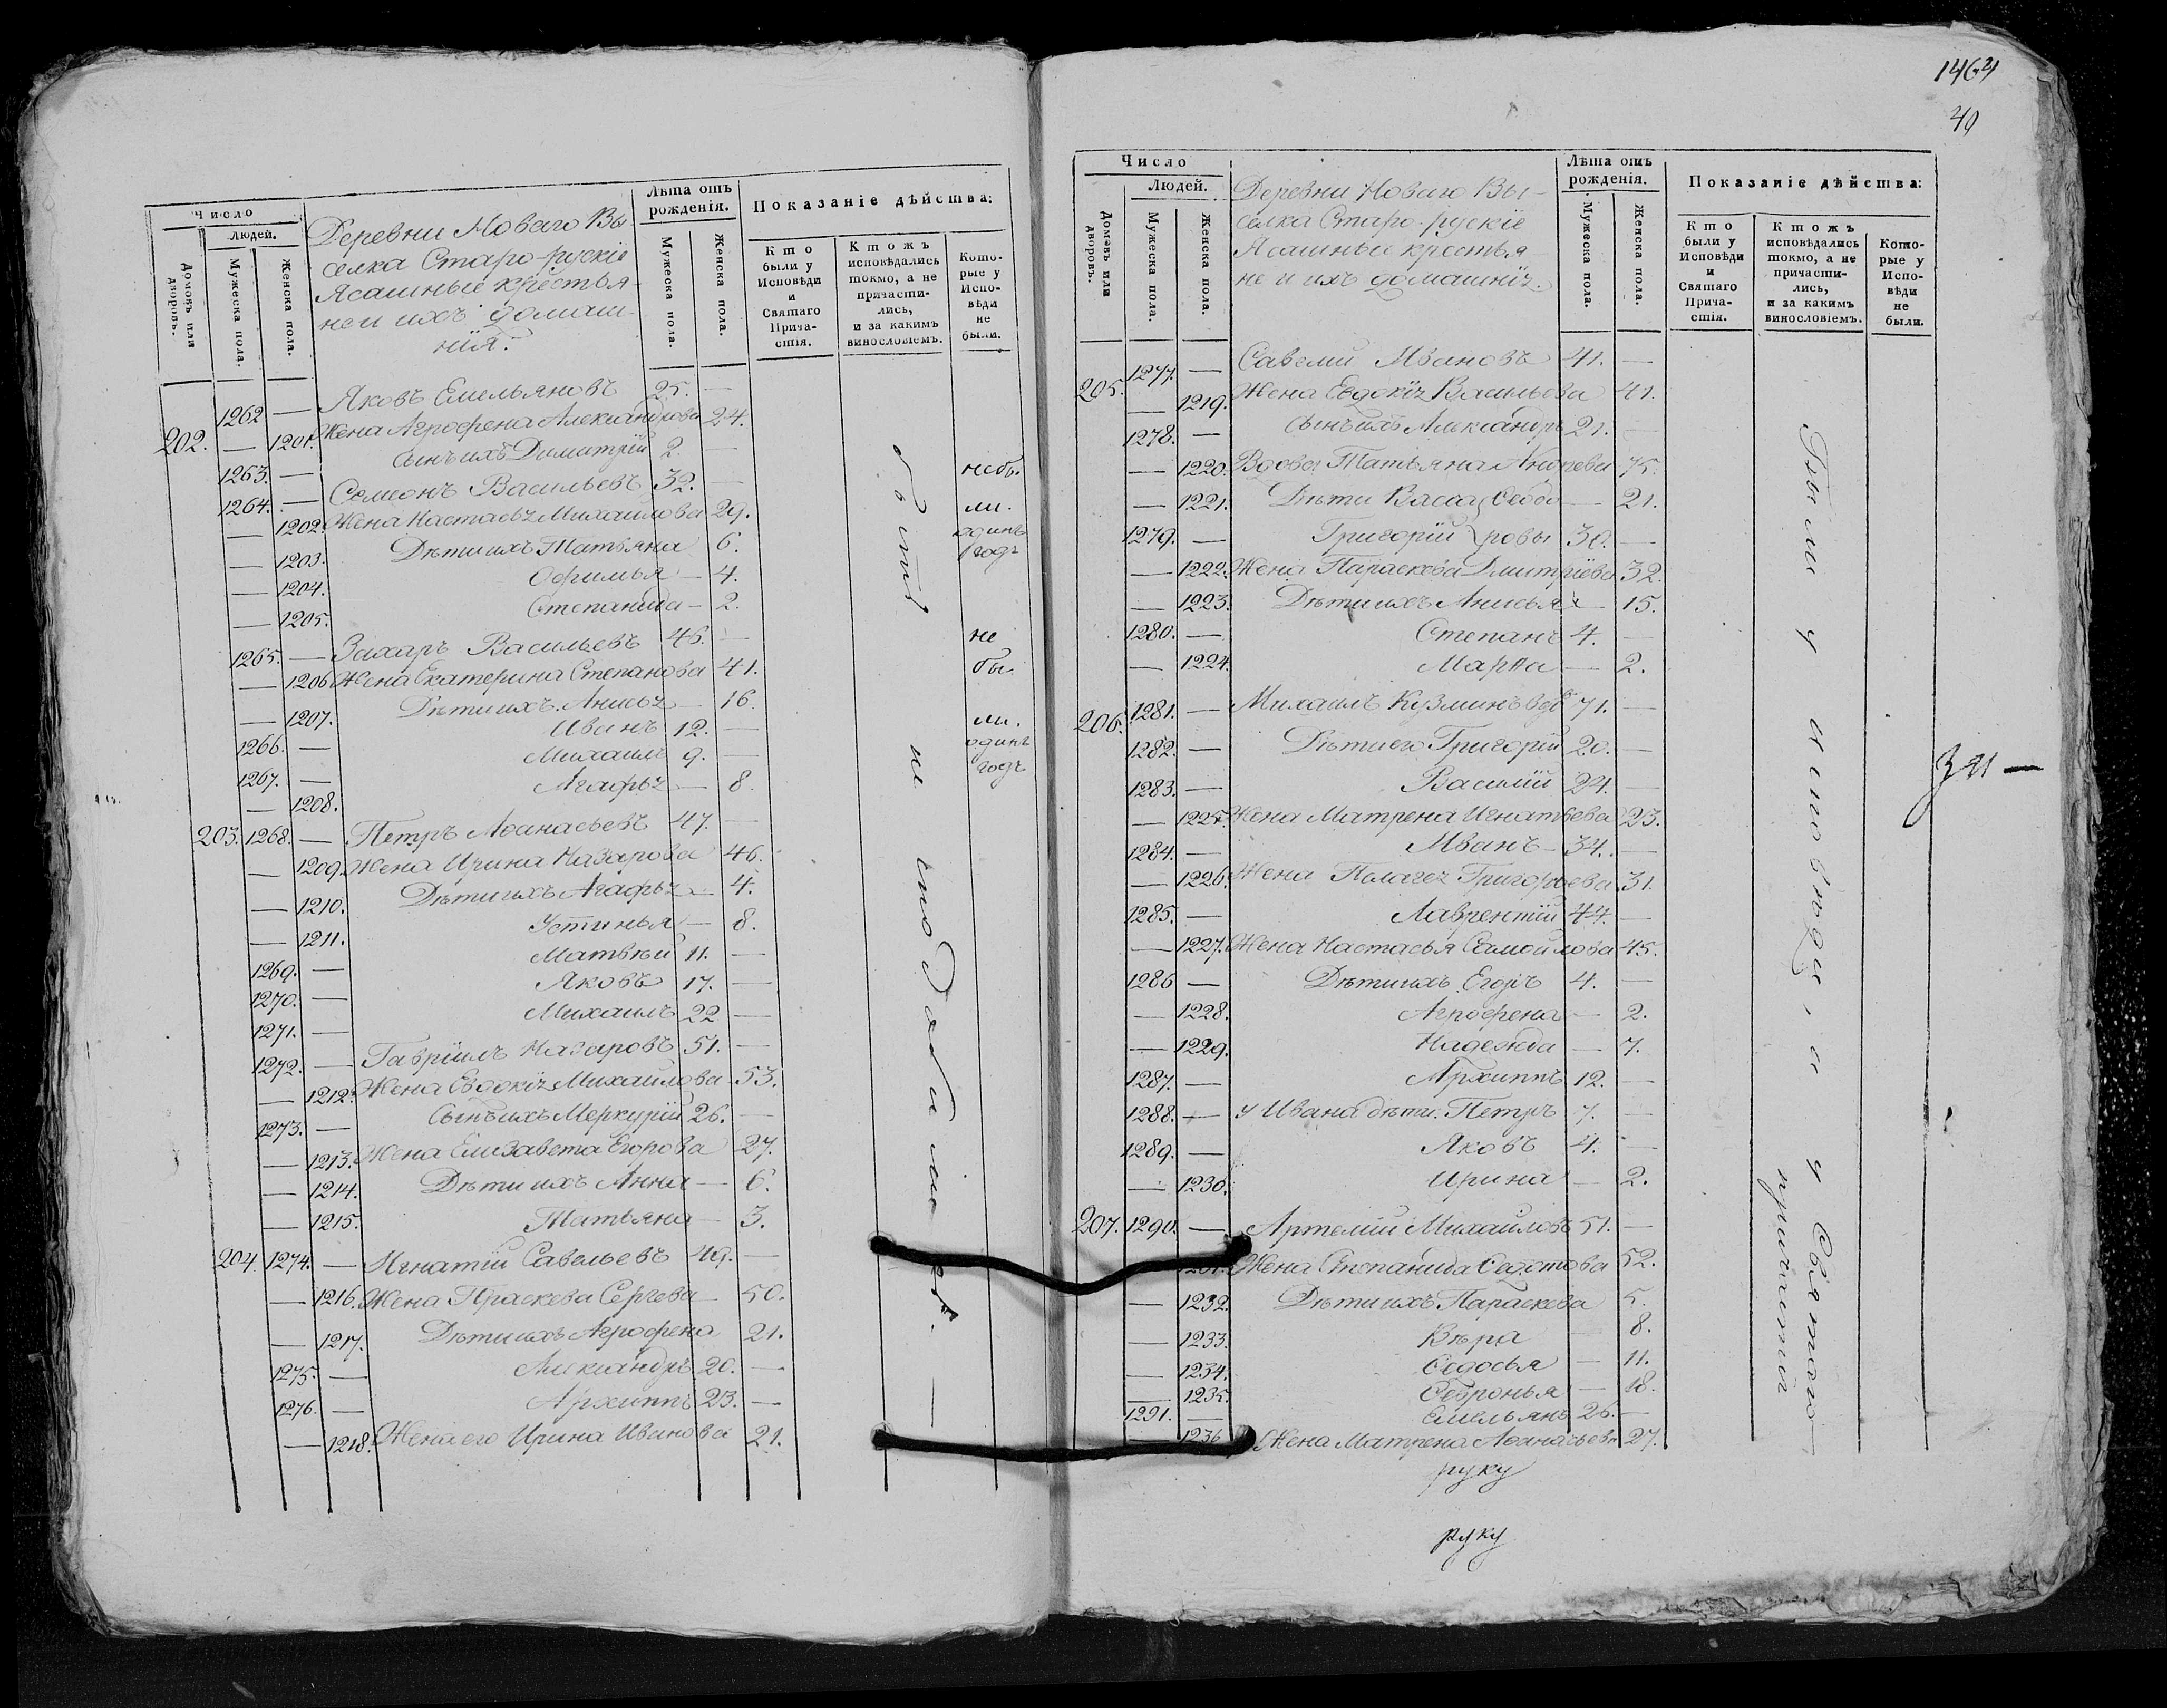 Число
Людей.
Домовъ или дворовъ.
Мужеска пола.
Женска пола.
Деревни Новаго Вы
селка Старо-рускіе
Ясашные крестья-
не и ихъ домаш-
нія.
Лѣта отъ рожденія.
Мужеска пола.
Женска пола.
Показаніе дѣйства:
Кто были у Исповѣди и Святаго Прича- стія.
Ктожъ исповѣдались токмо, а не причасти- лись, и за какимъ винословіемъ.
Кото- рые у Испо- вѣди не были.
1262 — Яковъ Емельяновъ 25. —
202. — 1201. Жена Агрофена Александрова 24.
1263. — Сынъ ихъ Димитрій 2. —
1264. — Семеонъ Васильевъ 32. —
— 1202. Жена Настасья Михаилова 29.
— 1203. Дѣти ихъ Татьяна 6.
— 1204. Офимья — 4.
— 1205. Степанида — 2.
1265. — Захаръ Васильевъ 46. —
— 1206 Жена Екатерина Степанова 41.
— 1207. Дѣти ихъ Анисья — 16.
1266. — Иванъ 12. —
1267. — Михаилъ 9. —
— 1208. Агафья — 8.
203. 1268. — Петръ Аѳанасьевъ 47. —
— 1209. Жена Ирина Назарова 46.
— 1210. Дѣти ихъ Агафья — 4.
— 1211. Устинья — 8.
1269. — Матвѣй 11. —
1270. — Яковъ 17. —
1271. — Михаилъ 22 —
1272. — Гавріилъ Назаровъ 51. —
— 1212. Жена Евдокія Михаилова 53.
1273. — Сынъ ихъ Меркурій 26. —
— 1213. Жена Елизавета Егорова 27.
— 1214. Дѣти ихъ Анна — 6.
— 1215. Татьяна — 3.
204. 1274. — Игнатій Савельевъ 49. —
— 1216. Жена Праскева Сергева — 50.
— 1217. Дѣти ихъ Агрофена 21.
1275. — Александръ 20. —
1276. — Архиппъ 23. —
— 1218. Жена его Ирина Иванова 21.
небы
ли.
одинъ
годъ
не
бы
ли.
одинъ
годъ
1464
40
Число
Людей.
Домовъ или дворовъ.
Мужеска пола.
Женска пола.
Деревни Новаго Вы-
селка Старо-рускіе
Ясашные крестья
не и ихъ домашніх.
Лѣта отъ рожденія.
Мужеска пола.
Женска пола.
Показаніе дѣйства:
Кто были у Исповѣди и Святаго Прича- стія.
Ктожъ исповѣдались токмо, а не причасти- лись, и за какимъ винословіемъ.
Кото- рые у Испо- вѣди не были.
205. 1277. — Савелий Ивановъ 41. —
— 1219. Жена Евдокія Васильева 41.
1278. — Сынъ ихъ Александръ 21. —
— 1220. Вдова Татьяна 75.
— 1221. Дѣти Васса Ѳедо — 21.
1279. — Григорій ровы 30. —
— 1222. Жена Параскева Дмитріева 32.
— 1223. Дѣти ихъ Анисья — 15.
1280. — Степанъ 4. —
— 1224. Марѳа — 2.
206. 1281. — Михаилъ Кузминъ вдв 71. —
1282. — Дѣти его Григорій 20. —
1283. — Василій 24. —
— 1225. Жена Матрена Игнатьева 23.
1284. — Иванъ — 34. —
— 1226. Жена Пелагея Григорьева 31.
1285. — Лаврентій 44. —
— 1227. Жена Настасья Самойлова 45.
1286 — Дѣти ихъ Егоръ 4. —
— 1228. Агрофена — 2.
— 1229. Надежда — 7.
1287. — Архиппъ 12. —
1288. — у Ивана дѣти. Петръ 7. —
1289. — Яковъ 4. —
— 1230. Ирина — 2.
207. 1290. — Артемій Михайловъ 51. —
Жена Степанида Ѳедотова 52.
— 1232. Дѣти ихъ Параскева 5.
— 1233. Вѣра — 8.
— 1234. Ѳедосья — 11.
— 1235. Ѳевронья — 18.
1291. — Емельянъ 26. —
— 1236 Жена Матрена Аѳанасьева 27.
Были у исповѣди, а у Святаго —
причастія
руку
руку